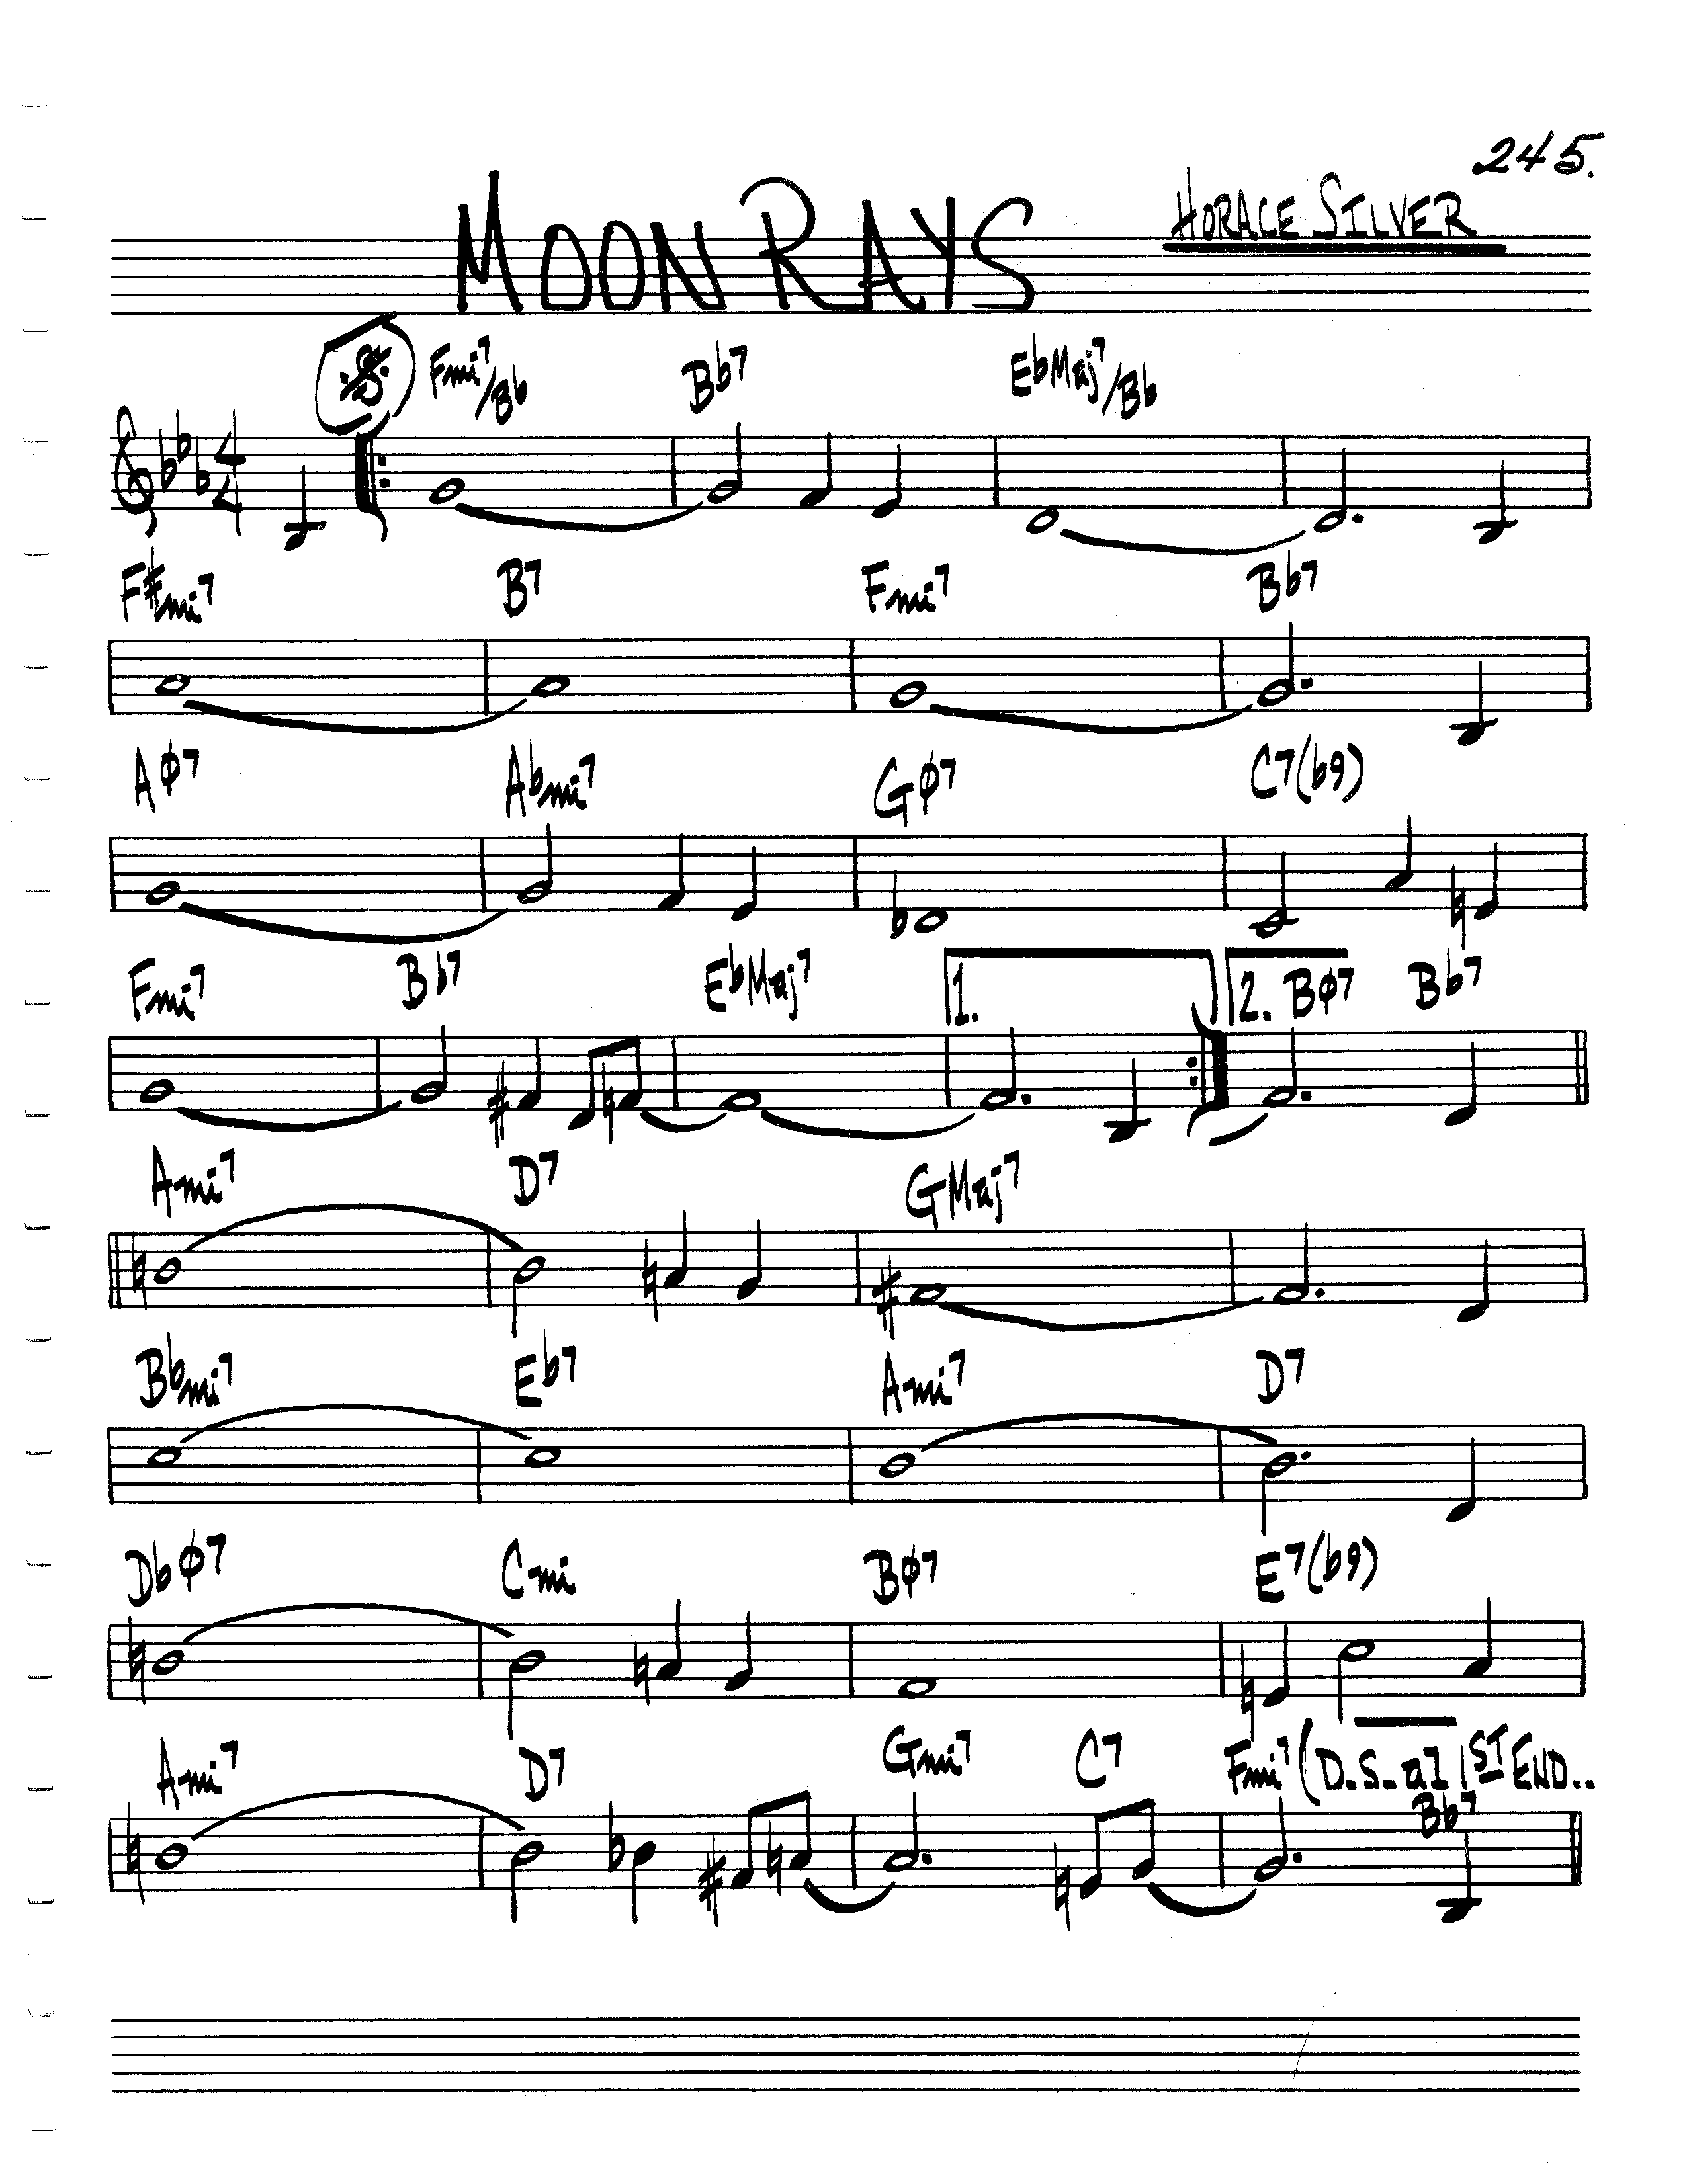 245.
MOON RAYS
HORACE SILVER
4/4 Fmi7/Bb Bb7 EbMaj7/Bb
F#mi7 B7 Fmi7 Bb7
Aø7 Abmi7 Gø7 C7(b9)
Fmi7 Bb7 EbMaj7 1. 2. Bø7 Bb7
Ami7 D7 GMaj7
Bbmi7 Eb7 Ami7 D7
Dbø7 Cmi Bø7 E7(b9)
Ami7 D7 Gmi7 C7 Fmi7 (D.S. al 1ST END..
Bb7